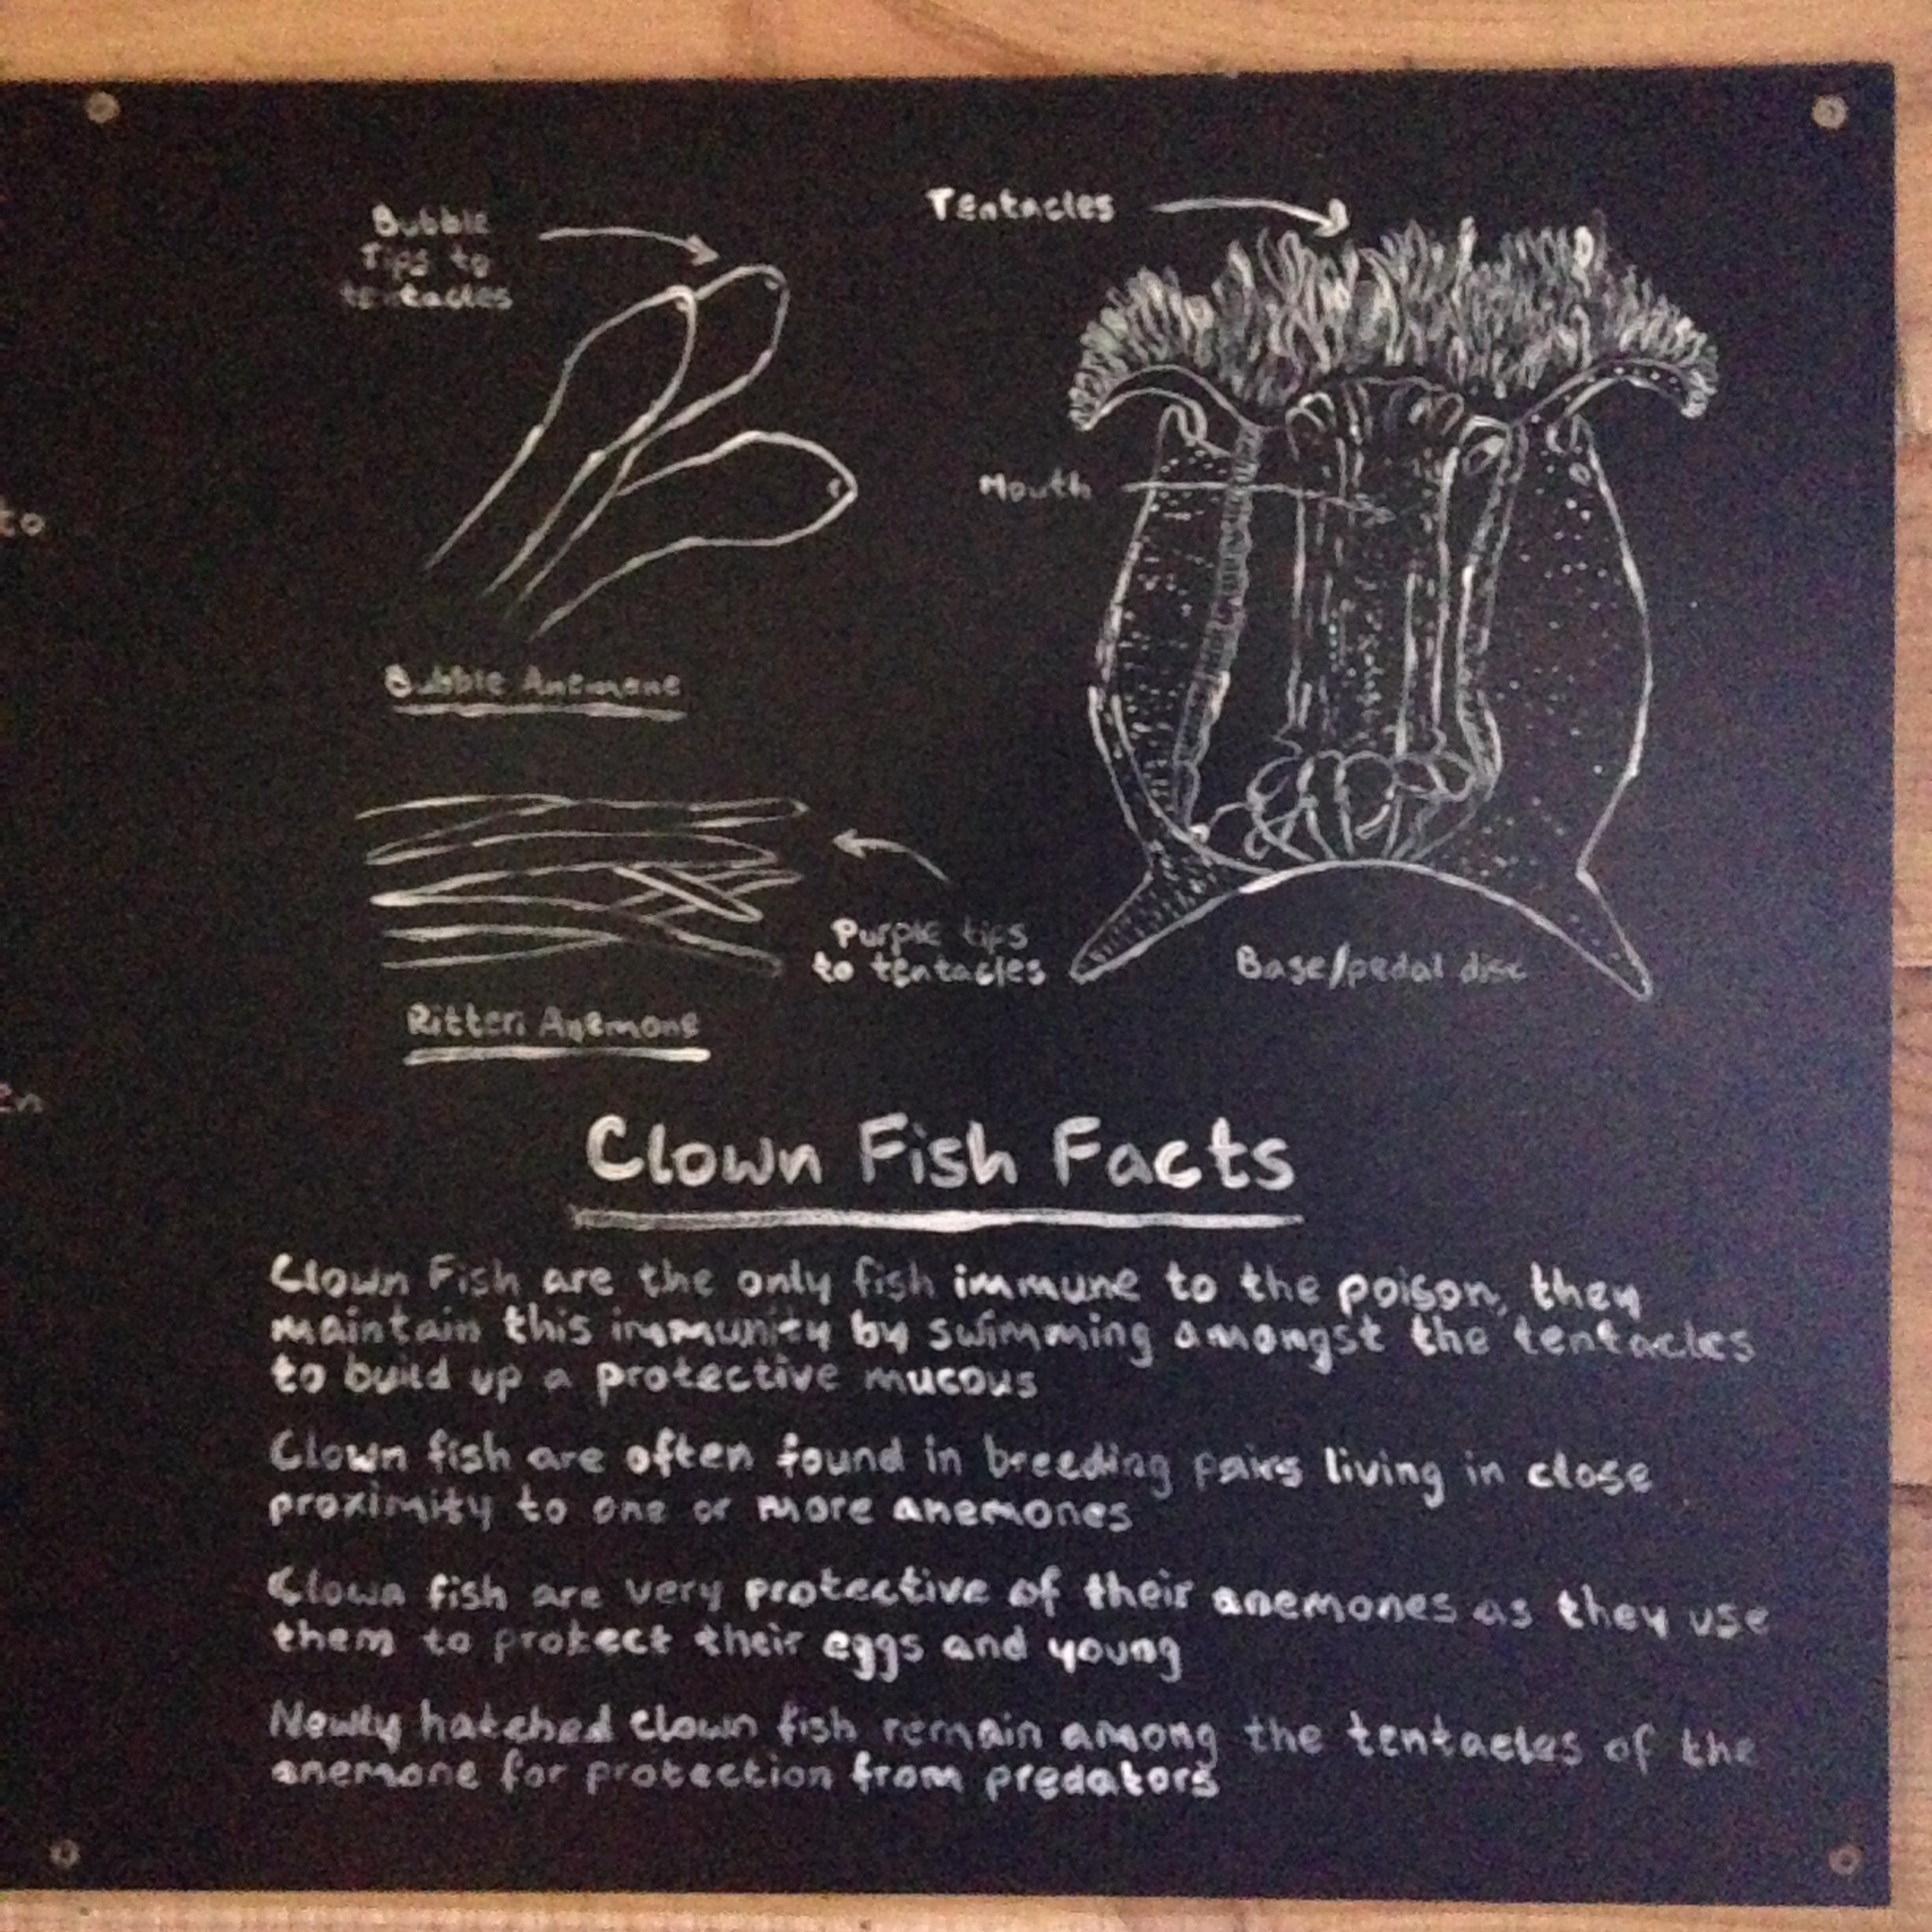 Bubble
Tips to
tentacles
Tentacles
Mouth
to
Bubble Anemone
Purple tips
to tentacles
Base/pedal disc
Ritteri Anemone
en
Clown Fish Facts
Clown Fish are the only fish immune to the poison, they
maintain this immunity by swimming amongst the tentacles
to build up a protective mucous
Clown fish are often found in breeding pairs living in close
proximity to one or more anemones
Clown fish are very protective of their anemones as they use
them to protect their eggs and young
Newly hatched clown fish remain among the tentacles of the
anemone for protection from predators